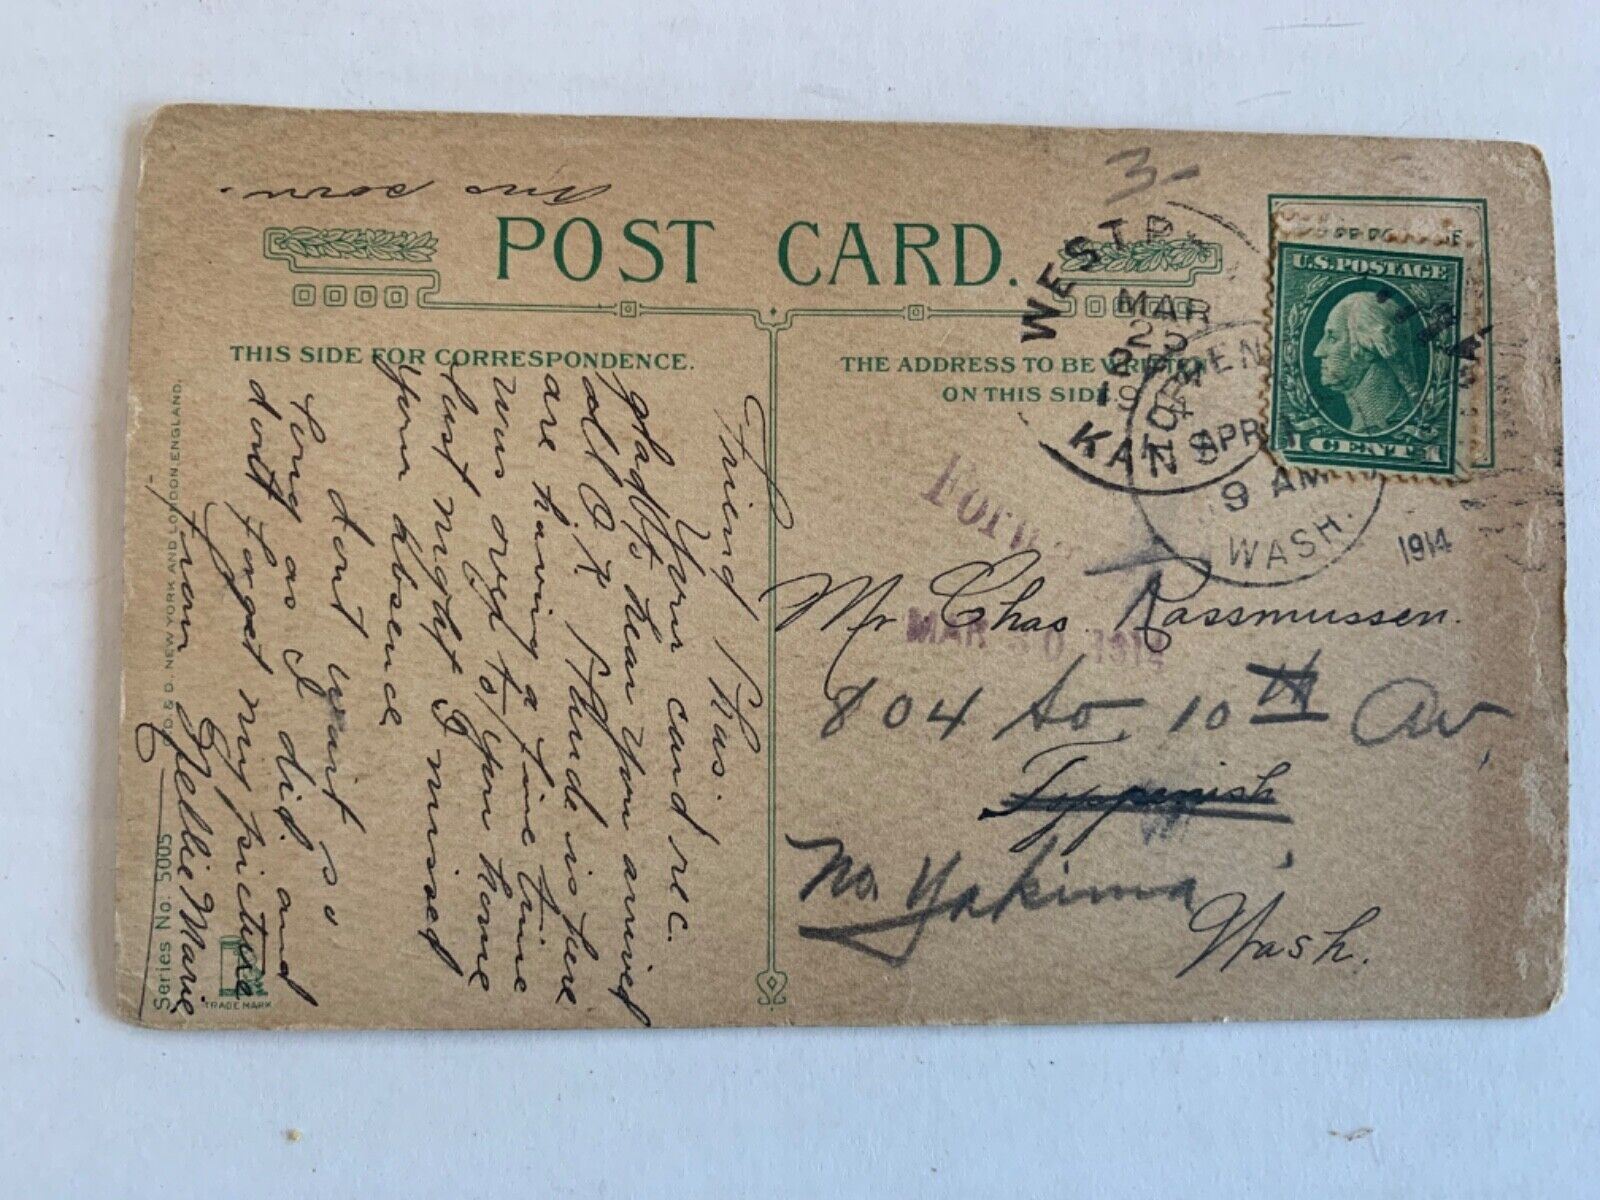 Ans soon.
POST CARD.
THIS SIDE FOR CORRESPONDENCE.
THE ADDRESS TO BE WRITTEN
ON THIS SIDE.
Friend Chas.
Your card rec.
glad to hear you arrived
all O.K. Maude is here
are having a fine time
was over to your home
last night I missed
your absence
dont wait so
long as I did. and
dont forget my picture
from Nellie Marie
Series No. 5005
NEW YORK AND LONDON, ENGLAND.
TRADE MARK
3-
MAR
KANS
APR 1
9 AM
WASH.
1914
U.S. POSTAGE
1 CENT 1
MAR 30 1914
Mr Chas. Rassmussen.
804 So. 10TH Av,
Toppenish
No. Yakima,
Wash.